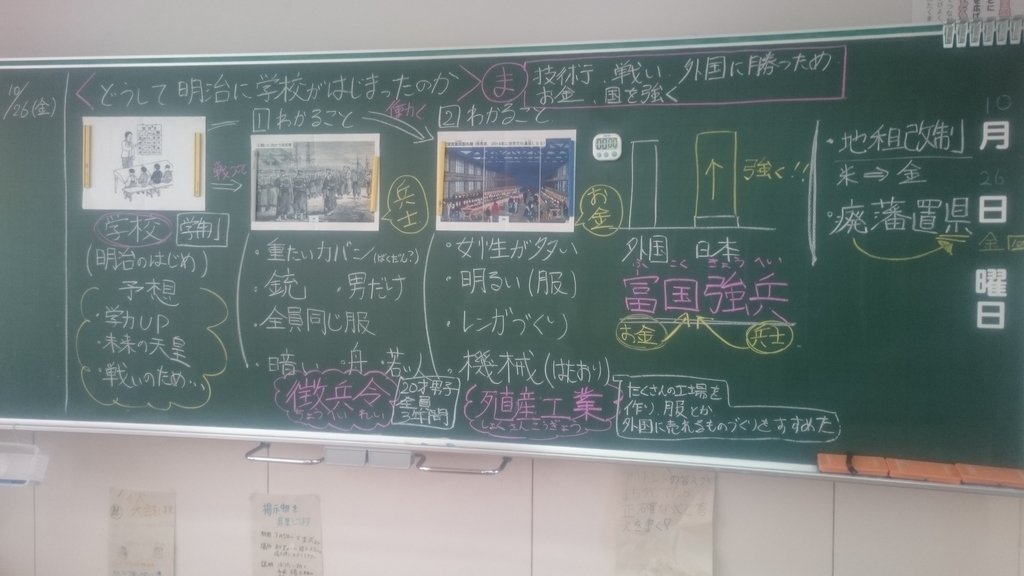 10/26(金)
どうして明治に学校がはじまったのか
ま
技術、戦い、外国に勝つため
お金、国を強く
学校 学制
(明治のはじめ)
予想
・学力UP
・未来の天皇
・戦いのため…
1 わかること
兵士
・重たいカバン(ばくだん?)
・銃 ・男だけ
・全員同じ服
・暗い ・舟 ・若い
徴兵令
ちょうへいれい
20才男子
全員
3年間
働く
2 わかること
お金
・女性が多い
・明るい(服)
・レンガづくり
・機械(はたおり)
殖産工業
しょくさんこうぎょう
たくさんの工場を
作り、服とか
外国に売れるものづくりをすすめた
強く!!
外国 日本
ふ こく きょう へい
富国強兵
お金 兵士
・地租改制
米⇒金
・廃藩置県
10
月
26
日
金
曜
日